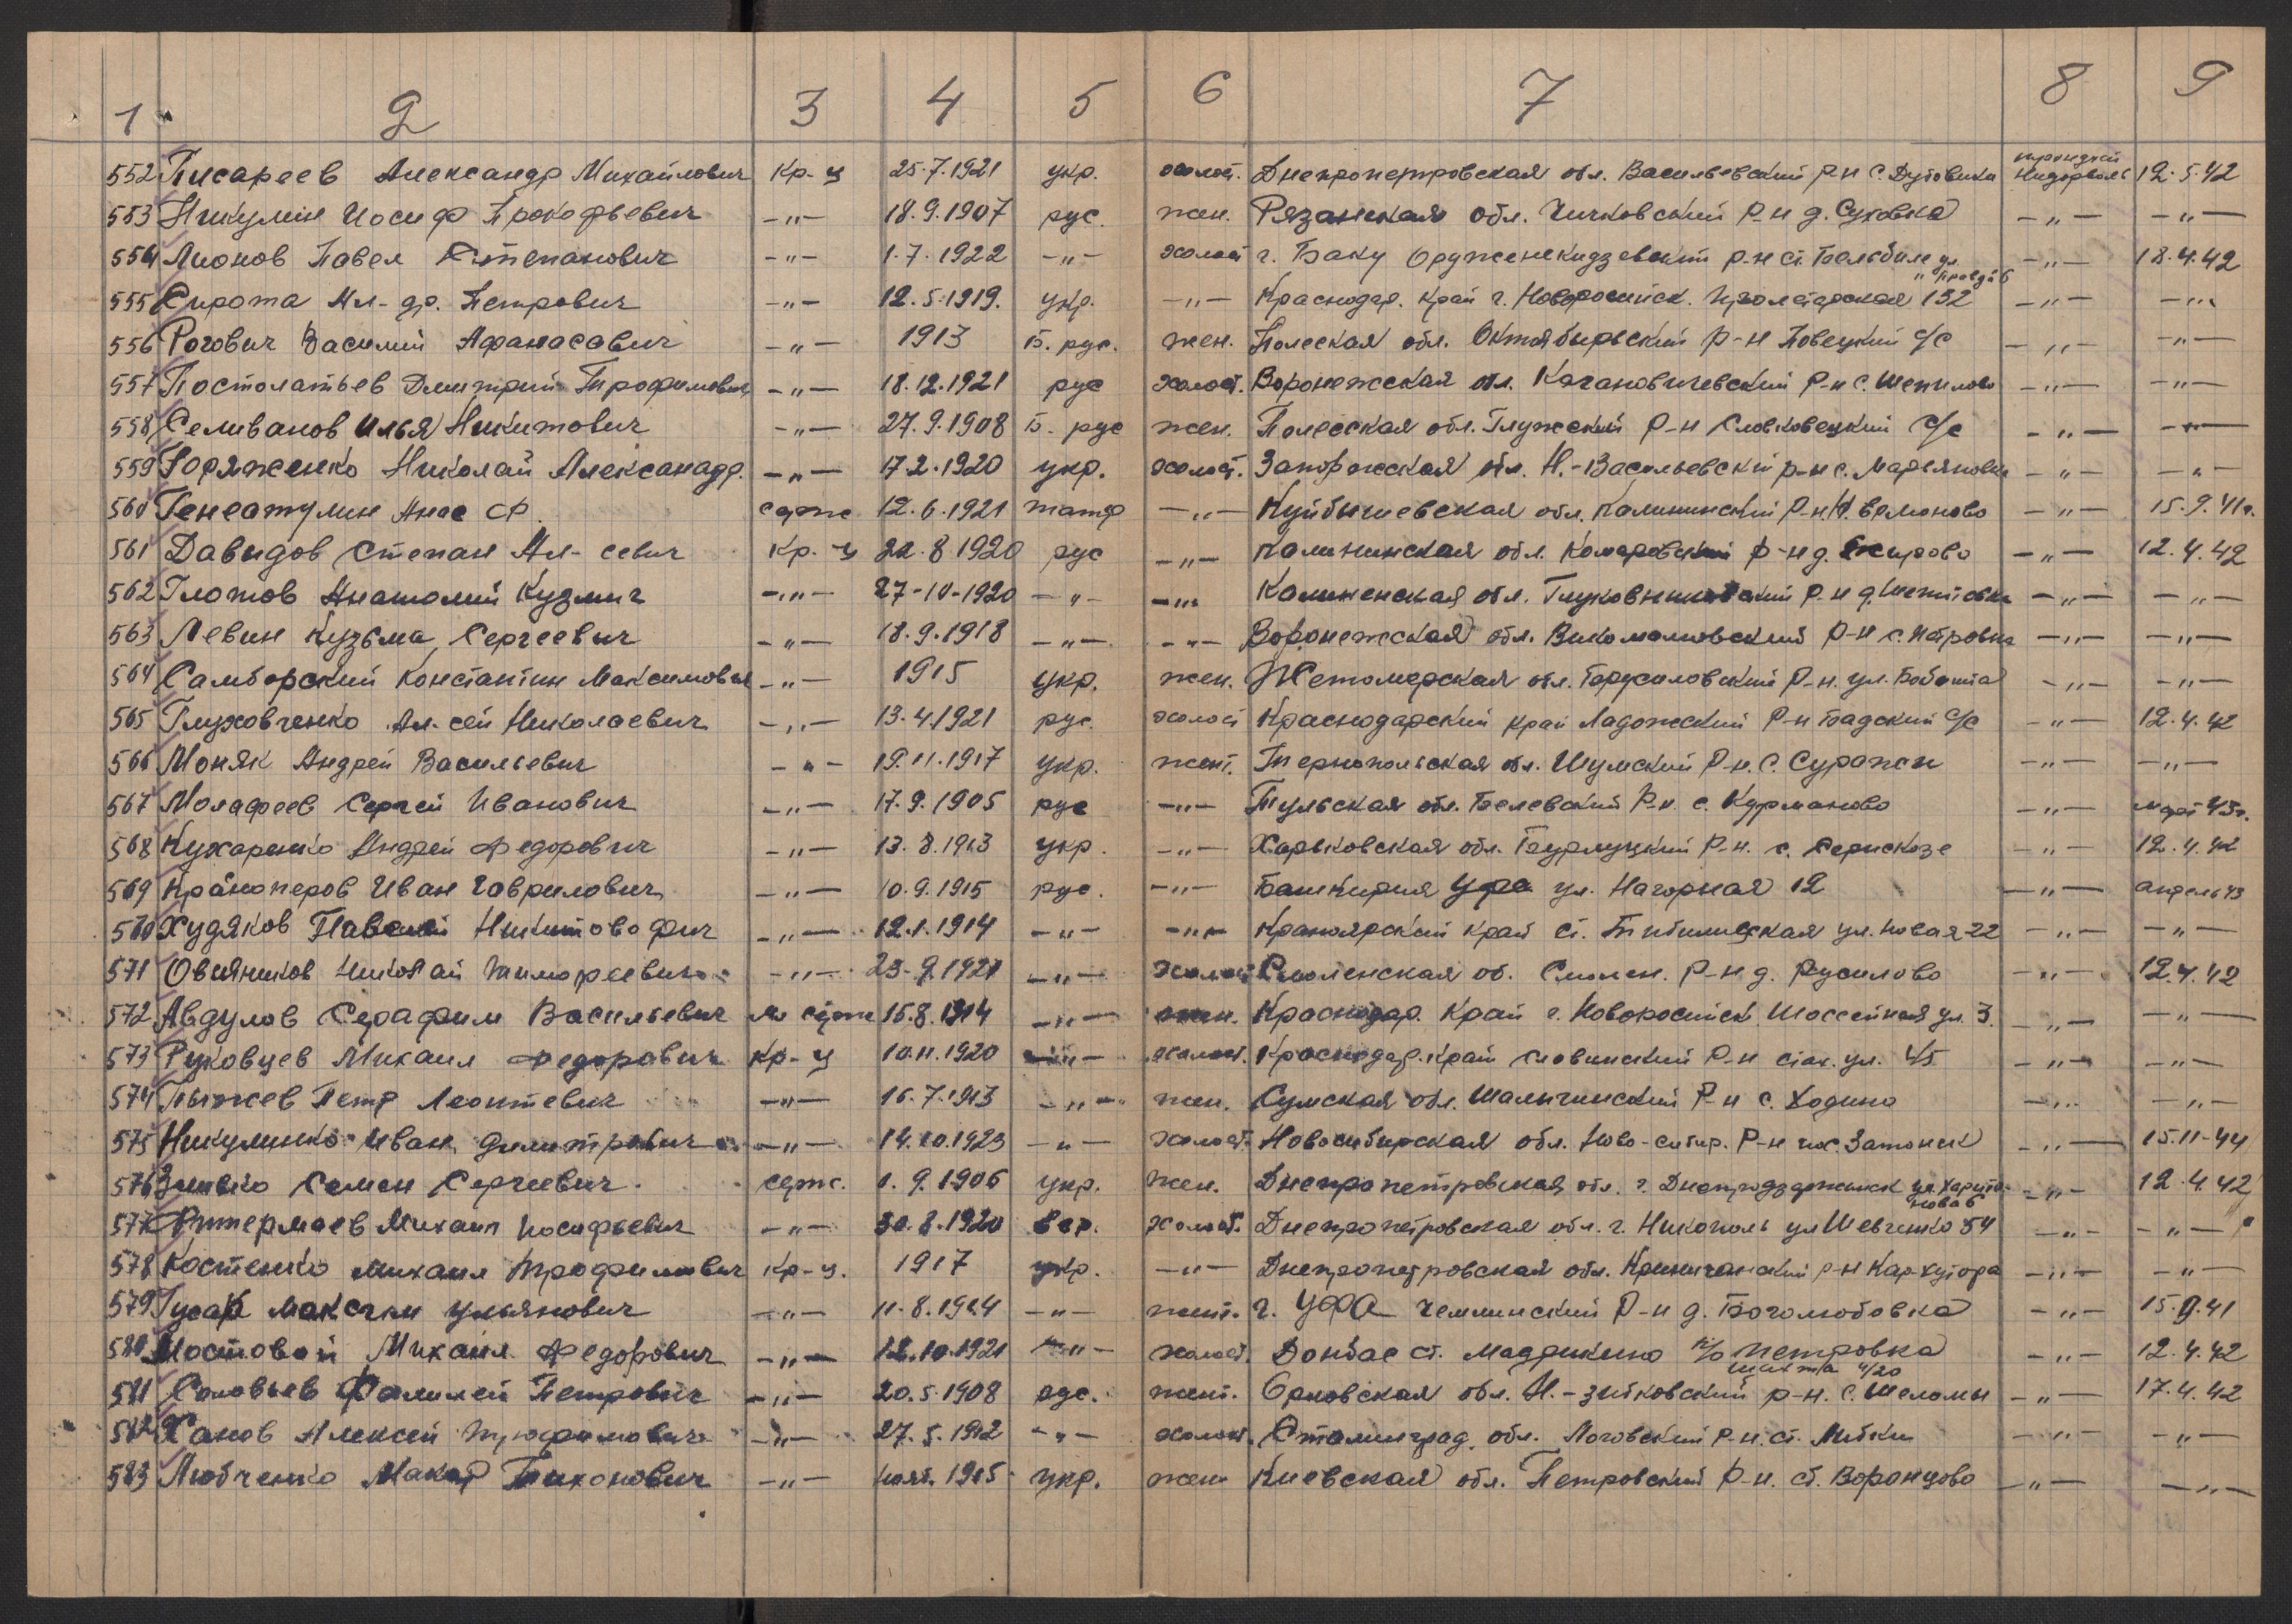 1 2 3 4 5 6 7 8 9
552 Писареев Александр Михайлович Кр-ц 25.7.1921 укр. холост. Днепропетровская обл. Васильевский р-н с. 12.5.42
553 Никулин Иосиф Прокофьевич -"- 18.9.1907 рус. жен. Рязанская обл. Чучковский р-н д. Суховка -"- -"-
554 Лионов Павел Степанович -"- 1.7.1922 -"- холост г. Баку Оруженекидзевский р-н ст. -"- 18.4.42
555 Сирота Ал-др. Петрович -"- 12.5.1919. укр. -"- Краснодар. край г. Новоросийск. Пролетарская 132 -"- -"-
556 Рогович Василий Афанасавич -"- 1913 б. рус. жен. Полеская обл. Октябырьский р-н Повецкий с/с -"- -"-
557 Постолатьев Дмитрий Трофимович -"- 18.12.1921 рус холост. Воронежская обл. Кагановичевский р-н с. Шепилово -"- -"-
558 Селиванов Илья Никитович -"- 27.9.1908 б. рус жен. Полесская обл. Глужский р-н Словковецкий с/с -"- -"-
559 Горяженко Николай Александр. -"- 17.2.1920 укр. холост. Запорожская обл. Н.-Васильевский р-н с. Марьяновка -"- -"-
560 Генеатулин Анас Ф. серж 12.6.1921 татар -"- Куйбышевская обл. Калининский р-н Н. ермоново -"- 15.9.41г.
561 Давыдов Степан Ал-севич Кр-ц 22.8.1920 рус -"- Калининская обл. Комаровский р-н д. -"- 12.4.42
562 Глотов Анатолий Кузмич -"- 27-10-1920 -"- -"- Калиненская обл. р-н д. Шептовка -"- -"-
563 Левин Кузьма Сергеевич -"- 18.9.1918 -"- -"- Воронежская обл. р-н с. Петровка -"- -"-
564 Самборский Константин Максимович -"- 1915 укр. жен. Жетомерская обл. Барусиловский р-н. ул. -"- -"-
565 Глуховченко Ал-сей Николаевич -"- 13.4.1921 рус. холост Краснодарский край Ладожский р-н Бадский с/с -"- 12.4.42
566 Моняк Андрей Васильевич -"- 19.11.1917 укр. жент. Тернопольская обл. Шумский р-н. с. Суражи -"- -"-
567 Молафеев Сергей Иванович -"- 17.9.1905 рус -"- Тульская обл. Белевский р-н с. Курмоново -"- март 43г.
568 Кухаренко Андрей Федорович -"- 13.8.1913 укр. -"- Харьковская обл. Бурлуцкий р-н. с. -"- 12.4.42
569 Краноперов Иван Гаврилович -"- 10.9.1915 рус. -"- Башкирия Уфа ул. Нагорная 12 -"- апрель 43
570 Худяков Никитово фич -"- 12.1.1914 -"- -"- Краноярский край ст. ул. новая-22 -"- -"-
571 Овиянников Николай Тимофеевич -"- 23.9.1921 -"- холост Смоленская об. Смолен. р-н д. Русилово -"- 12.4.42
572 Авдулов Серафим Васильевич м серж 15.8.1914 -"- жен. Краснодар. Край г. Новоросийск Шоссейная ул. 3. -"- -"-
573 Руковцев Михаил Федорович Кр-ц 10.11.1920 -"- холост. Краснодар. край словинский р-н стах. ул. 45 -"- -"-
574 Пыжев Петр Леонтевич -"- 16.7.1913 -"- жен. Сумская обл. Шалыгинский р-н с. Ходино -"- -"-
575 Никулинко Иван Дмитревич -"- 14.10.1923 -"- холост. Новосибирская обл. Ново-сибир. р-н пос. Затонск -"- 15.11-44
576 Зинько Семен Сергеевич серж. 1.9.1906 укр. жен. Днепропетровская обл. г. Днепродзержинск ул. Харито- -"- 12.4.42
нова 6
577 Питермаев Михаил Иосифьевич -"- 30.8.1920 евр. холост. Днепропетровская обл. г. Никополь ул Шевченко 54 -"- -"-
578 Костенко Михаил Трофимович Кр-ц. 1917 укр. -"- Днепропетровская обл. Криничанский р-н Кар-хутора -"- -"-
579 Гусак Максим Ульянович -"- 11.8.1914 -"- жент. г. УФА Чешминский р-н д. Боголюбовка -"- 15.9.41
580 Мостовой Михаил Федорович -"- 12.10.1921 -"- холост. Донбас ст. Мадрикино п/о Петровка -"- 12.4.42
шахта 4/20
581 Соловьев Петрович -"- 20.5.1908 рус. жент. Орловская обл. Н.-зыбковский р-н. с. Шеломы -"- 17.4.42
582 Ханов Алексей Трофимович -"- 27.5.1912 -"- холост. Сталинград. обл. Логовский р-н. ст. Лыбки -"- -"-
583 Любченко Макар Тихонович -"- нояб. 1915 укр. жен Киевская обл. Петровский р-н. ст. Воронцово -"- -"-